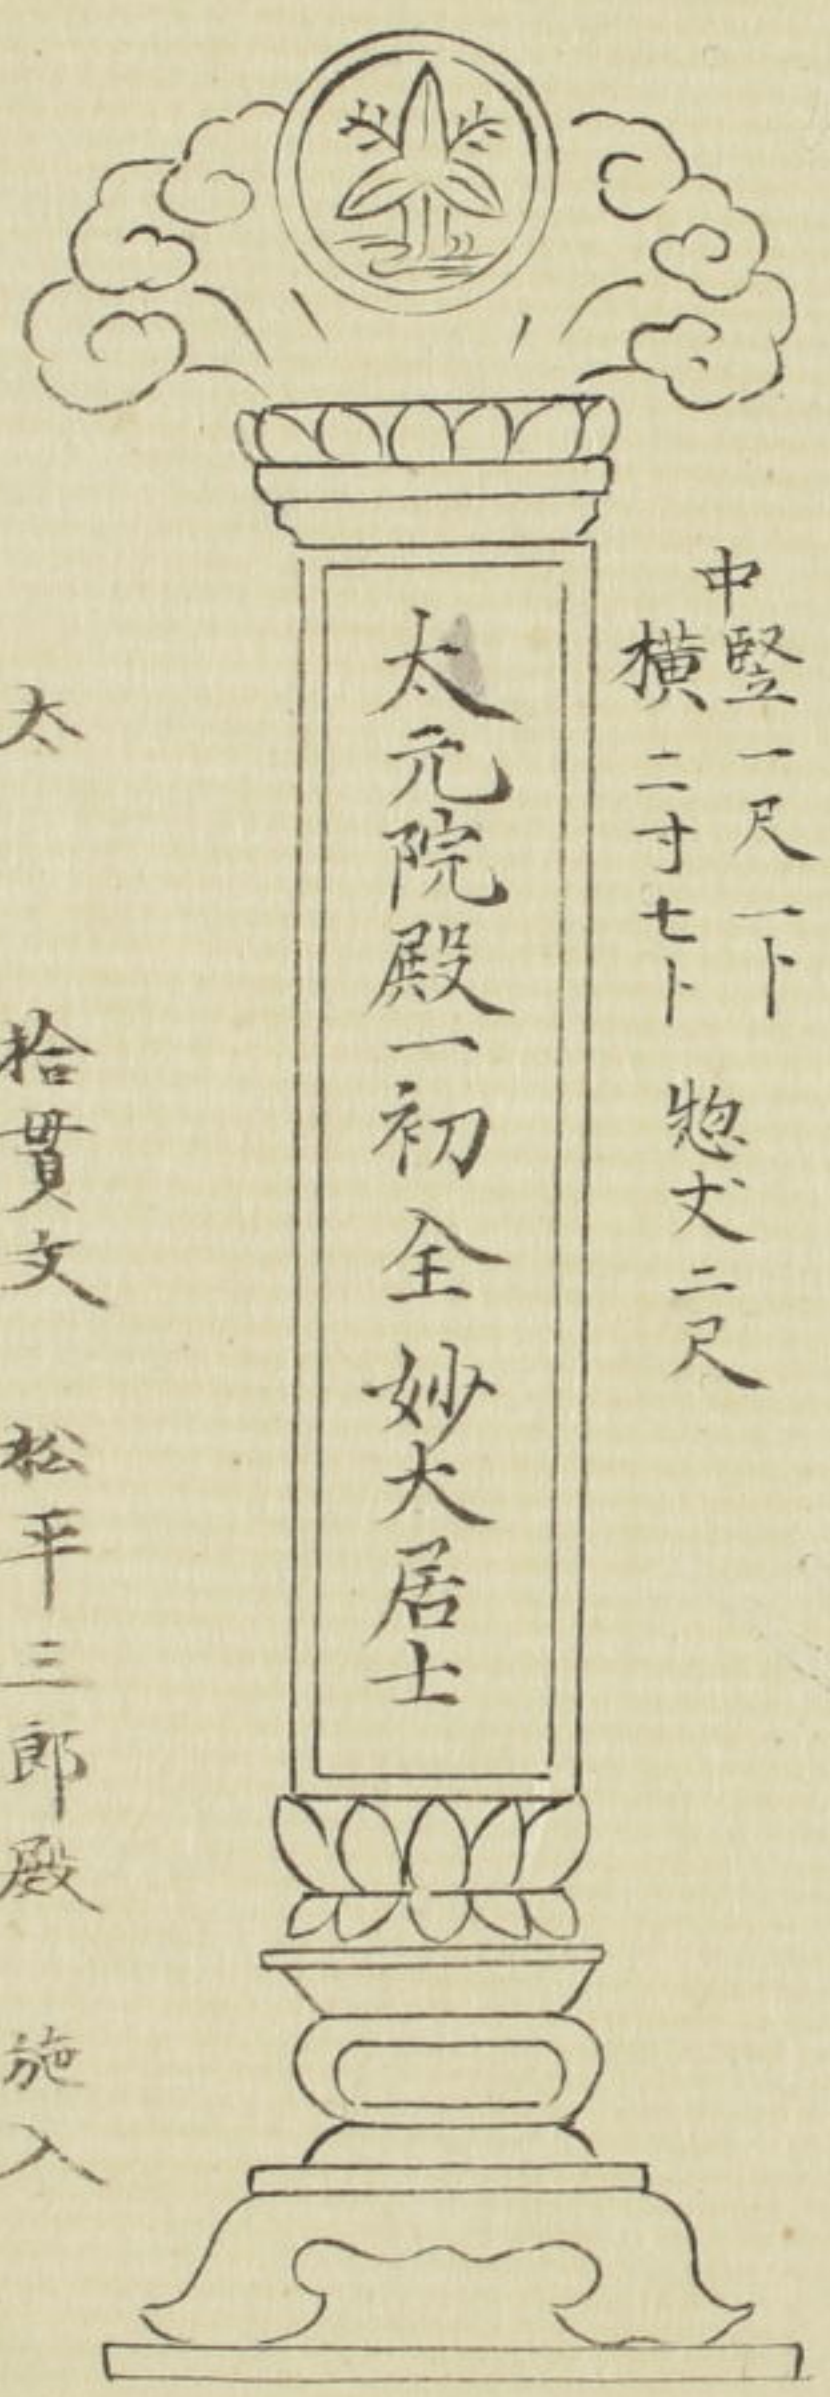 中竪一尺一卜
横二寸七卜
惣丈二尺
太元院殿一初全妙大居士
太 拾貫文 松平三郎殿 施入